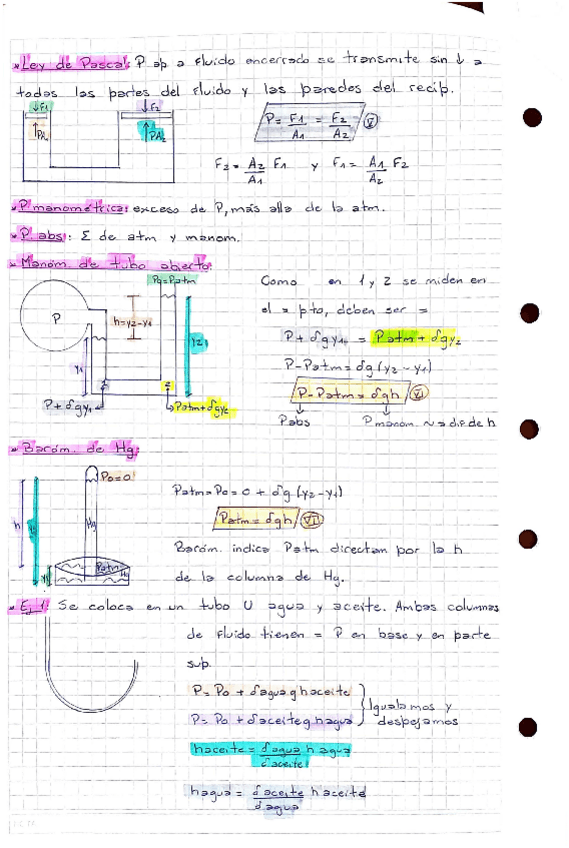 * Ley de Pascal: P ap a fluido encerrado se transmite sin ↓ a
todas las partes del fluido y las paredes del recip.
↓F1 ↓F2
↑PA1 ↑PA2
P = F1/A1 = F2/A2 (V)
F2 = A2/A1 F1 y F1 = A1/A2 F2
* P manométrica: exceso de P, más allá de la atm.
* P abs: Σ de atm y manom.
* Manóm. de tubo abierto:
P0=Patm
P
h=y2-y1
y1
y2
P + δgy1
Patm+δgy2
Como en 1 y 2 se miden en
el = pto, deben ser =
P + δgy1 = Patm + δgy2
P-Patm = δg(y2-y1)
P-Patm = δgh (VI)
Pabs Pmanom. ~ a dif de h
* Baróm. de Hg:
P0=0
h
y2
Hg
Patm
Hg
y1
Patm = P0 = 0 + δg(y2-y1)
Patm = δgh (VII)
Baróm. indica Patm directam por la h
de la columna de Hg.
* Ej 1: Se coloca en un tubo U agua y aceite. Ambas columnas
de fluido tienen = P en base y en parte
sup.
P = P0 + δagua g haceite
P = P0 + δaceite g hagua
Igualamos y
despejamos
haceite = δagua/δaceite hagua
hagua = δaceite/δagua haceite